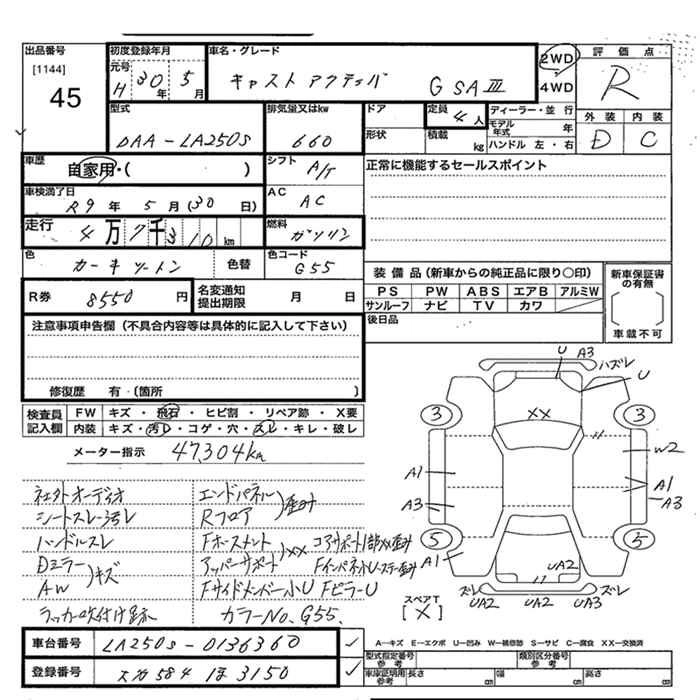 出品番号
[1144]
45
初度登録年月
元号
H 30年 5月
車名・グレード
キャスト アクティバ G SAⅢ
2WD
4WD
評価点
R
外装 内装
D C
型式
DAA-LA250S
排気量又はkw
660
ドア
形状
定員
4人
積載
kg
ディーラー・並行
モデル年式 年
ハンドル 左・右
車歴
自家用・( )
シフト
A/T
正常に機能するセールスポイント
車検満了日
R9年 5月(30日)
AC
AC
走行
4万7千310km
燃料
ガソリン
色
色替
色コード
G55
R券
8550円
名変通知
提出期限
月 日
装備品(新車からの純正品に限り○印)
PS PW ABS エアB アルミW
サンルーフ ナビ TV カワ
新車保証書の有無
車載不可
後日品
注意事項申告欄(不具合内容等は具体的に記入して下さい)
修復歴 有・(箇所 )
検査員記入欄
FW キズ・飛石・ヒビ割・リペア跡・X要
内装 キズ・汚レ・コゲ・穴・スレ・キレ・破レ
メーター指示 47,304km
シートスレ・汚レ
ハンドルスレ
Dミラー
AW
キズ
ラッカー吹付け跡
エンドパネル
Rフロア
歪み
アッパーサポート
XX
Fサイドメンバー小U FピラーU
カラーNo. G55.
U A3 ハズレ
U
XX
3 3
W2
A1
A1
A3
A3
5 5
A1
UA2
ズレ UA2 UA2 XX ズレ
スペアT
[X]
車台番号 LA250S-0136360
登録番号 スカ 584 ほ 3150
A-キズ E-エクボ U-凹み W-補修跡 S-サビ C-腐食 XX-交換済
型式指定番号参考
類別区分番号参考
車庫証明用参考 長さ cm 幅 cm 高さ cm